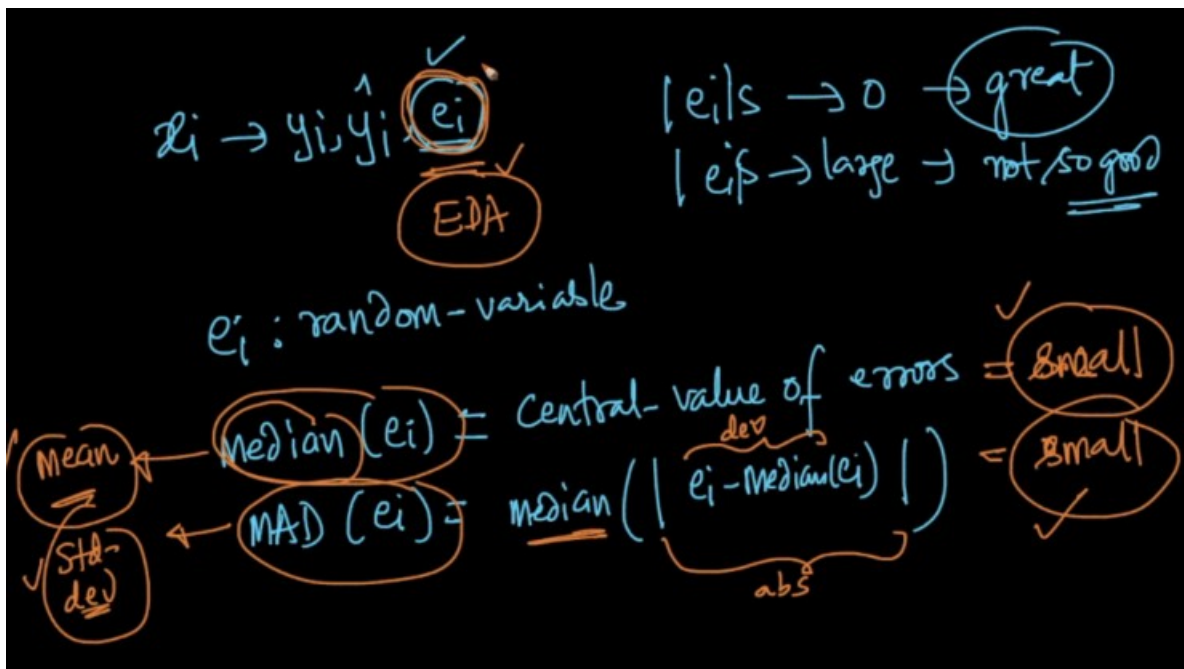 xi → yi, ŷi, ei
EDA
|ei|s → 0 → great
|ei|s → large → not so good
ei : random-variable
mean ← median (ei) = central-value of errors = small
dev
std-dev ← MAD (ei) = median ( | ei - median(ei) | ) = small
abs